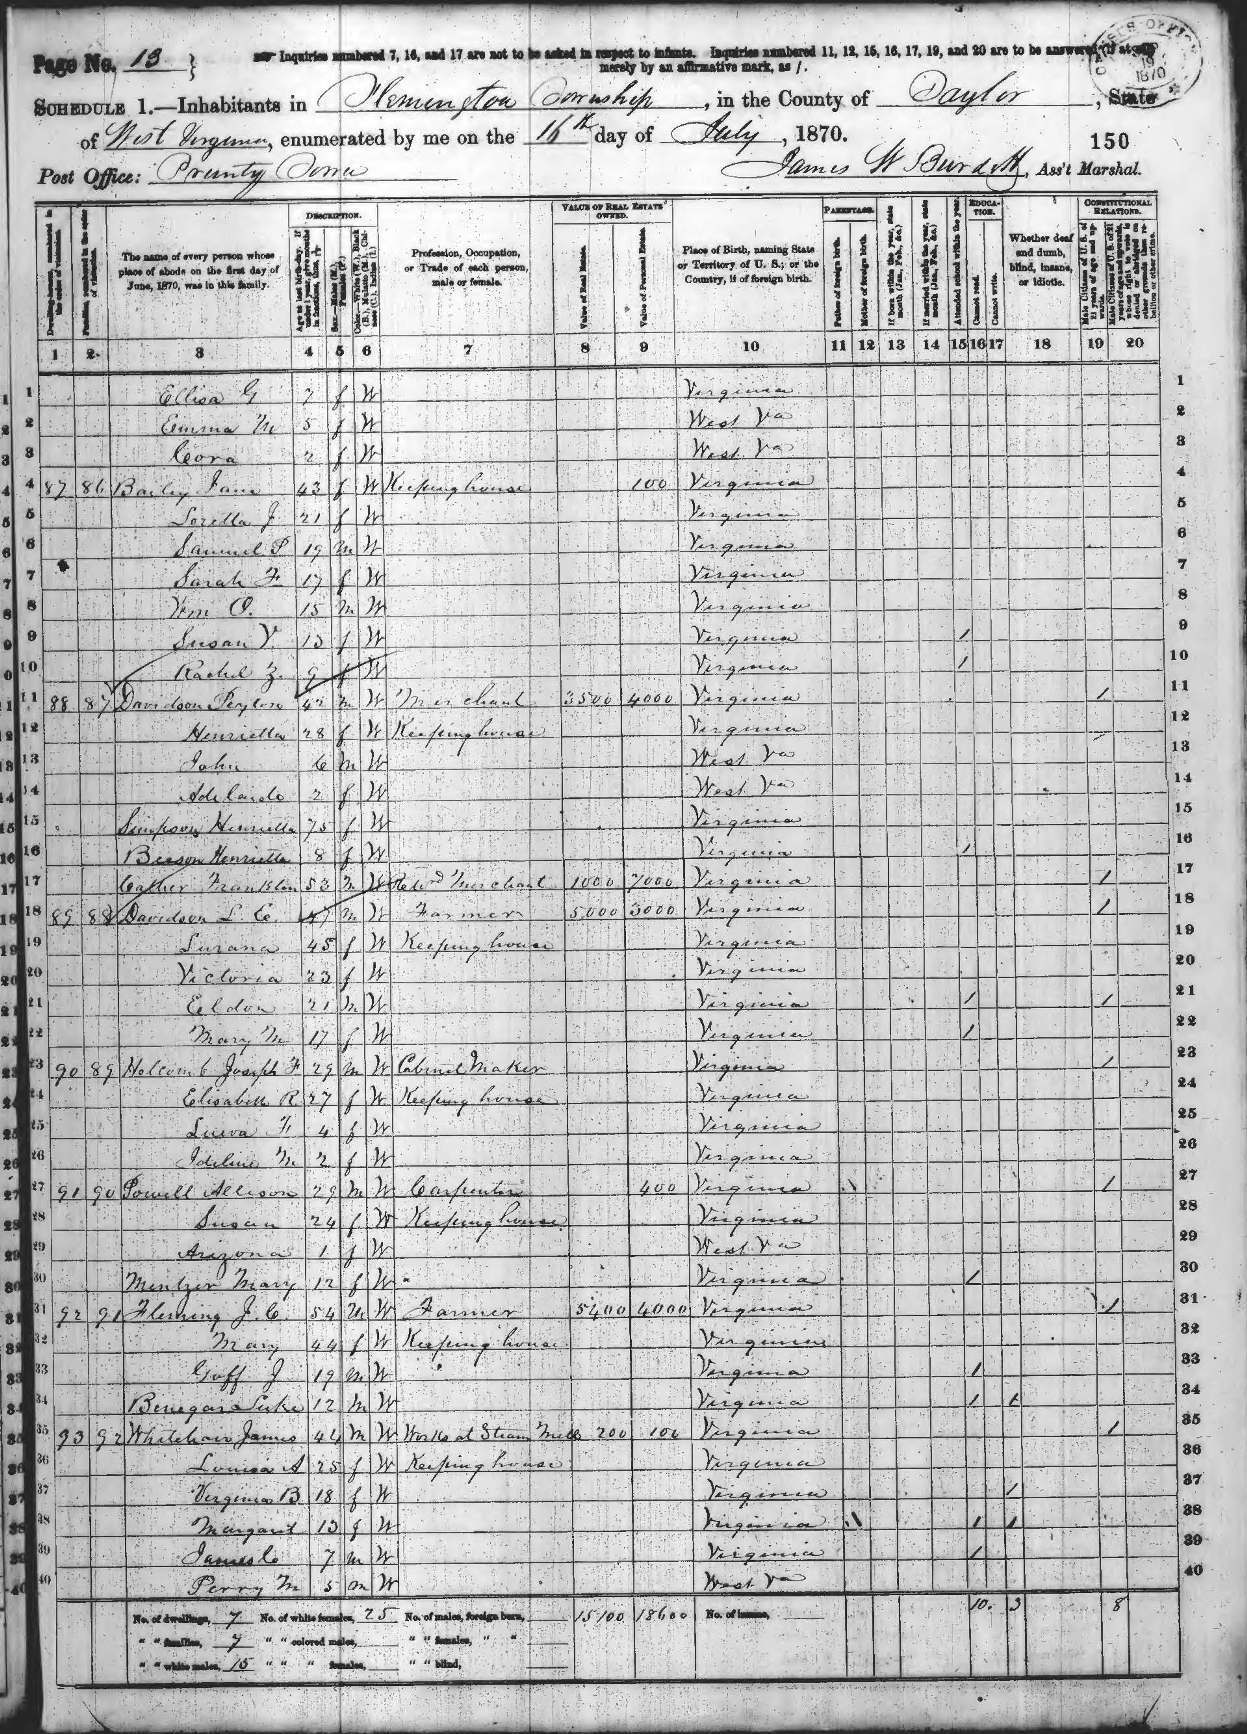 Page No. 13 } Inquiries numbered 7, 16, and 17 are not to be asked in respect to infants. Inquiries numbered 11, 12, 15, 16, 17, 19, and 20 are to be answered (if at all)
merely by an affirmative mark, as /.
SCHEDULE 1.—Inhabitants in Flemington Township, in the County of Taylor, State
of West Virginia, enumerated by me on the 16th day of July, 1870.
150
Post Office: Prunty Town James W Burdett, Ass't Marshal.
1870
DESCRIPTION. VALUE OF REAL ESTATE OWNED. PARENTAGE. EDUCATION. CONSTITUTIONAL RELATIONS.
Dwelling-houses, numbered in the order of visitation.
Families, numbered in the order of visitation.
The name of every person whose place of abode on the first day of June, 1870, was in this family.
Age at last birth-day. If under 1 year, give months in fractions, thus, 3/12
Sex.—Males (M.), Females (F.)
Color.—White (W.), Black (B.), Mulatto (M.), Chinese (C.), Indian (I.)
Profession, Occupation, or Trade of each person, male or female.
Value of Real Estate.
Value of Personal Estate.
Place of Birth, naming State or Territory of U. S.; or the Country, if of foreign birth.
Father of foreign birth.
Mother of foreign birth.
If born within the year, state month (Jan., Feb., &c.)
If married within the year, state month (Jan., Feb., &c.)
Attended school within the year.
Cannot read.
Cannot write.
Whether deaf and dumb, blind, insane, or idiotic.
Male Citizens of U. S. of 21 years of age and upwards.
Male Citizens of U. S. of 21 years of age and upwards, whose right to vote is denied or abridged on other grounds than rebellion or other crime.
1 2 3 4 5 6 7 8 9 10 11 12 13 14 15 16 17 18 19 20
1 Ellisa G 7 f W Virginia 1
2 Emma M 5 f W West Va 2
3 Cora 2 f W West Va 3
4 87 86 Bailey Jane 43 f W Keeping house 100 Virginia 4
5 Loretta J 21 f W Virginia 5
6 Samuel P 19 m W Virginia 6
7 Sarah F 17 f W Virginia 7
8 Wm O. 15 m W Virginia 8
9 Susan V. 13 f W Virginia / 9
10 Rachel Z. 9 f W Virginia / 10
11 88 87 Davidson Peyton 42 m W Merchant 3500 4000 Virginia / 11
12 Henrietta 28 f W Keeping house Virginia 12
13 John 6 m W West Va 13
14 Adelaide 2 f W West Va 14
15 Simpson Henrietta 75 f W Virginia 15
16 Beeson Henrietta 8 f W Virginia / 16
17 Cather Franklin 53 m W Retird Merchant 1000 7000 Virginia / 17
18 89 88 Davidson L. E. 47 m W Farmer 5000 3000 Virginia / 18
19 Lurana 45 f W Keeping house Virginia 19
20 Victoria 23 f W Virginia 20
21 Eeldon 21 m W Virginia / / 21
22 Mary M 17 f W Virginia / 22
23 90 89 Holcomb Joseph F 29 m W Cabinet Maker Virginia / 23
24 Elisabeth R 27 f W Keeping house Virginia 24
25 Lueva F. 4 f W Virginia 25
26 Ideline M 2 f W Virginia 26
27 91 90 Powell Allison 29 m W Carpenter 400 Virginia / 27
28 Susan 24 f W Keeping house Virginia 28
29 Arizona 1 f W West Va 29
30 Mentzer Mary 12 f W Virginia / 30
31 92 91 Fleming J. C. 54 m W Farmer 5400 4000 Virginia / 31
32 Mary 44 f W Keeping house Virginia 32
33 Goff J 19 m W Virginia / 33
34 Luke 12 m W Virginia / / 34
35 93 92 Whitehair James 44 m W Works at Steam Mill 200 100 Virginia / 35
36 Louisa A 25 f W Keeping house Virginia 36
37 Virginia B 18 f W Virginia / 37
38 Margaret 13 f W Virginia / / 38
39 James C 7 m W Virginia / 39
40 Perry M 5 m W West Va 40
No. of dwellings, 7 No. of white females, 25 No. of males, foreign born, 15,100 18600 No. of insane, 10. 3 8
" " families, 7 " " colored males, " " females, " "
" " white males, 15 " " " females, " " blind,